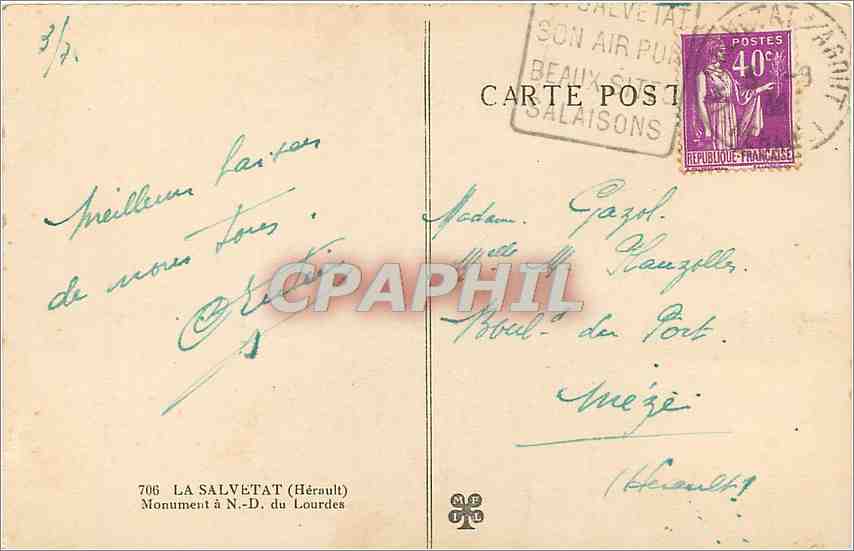 SALVETAT
SON AIR PUR
BEAUX SITES
SALAISONS
POSTES
40c
REPUBLIQUE-FRANÇAISE
CARTE POST
3/7
Meilleurs baisers
de nous tous.
Madame Gazol.
Boul. du Port.
Mèze
(Hérault)
CPAPHIL
706 LA SALVETAT (Hérault)
Monument à N.-D. du Lourdes